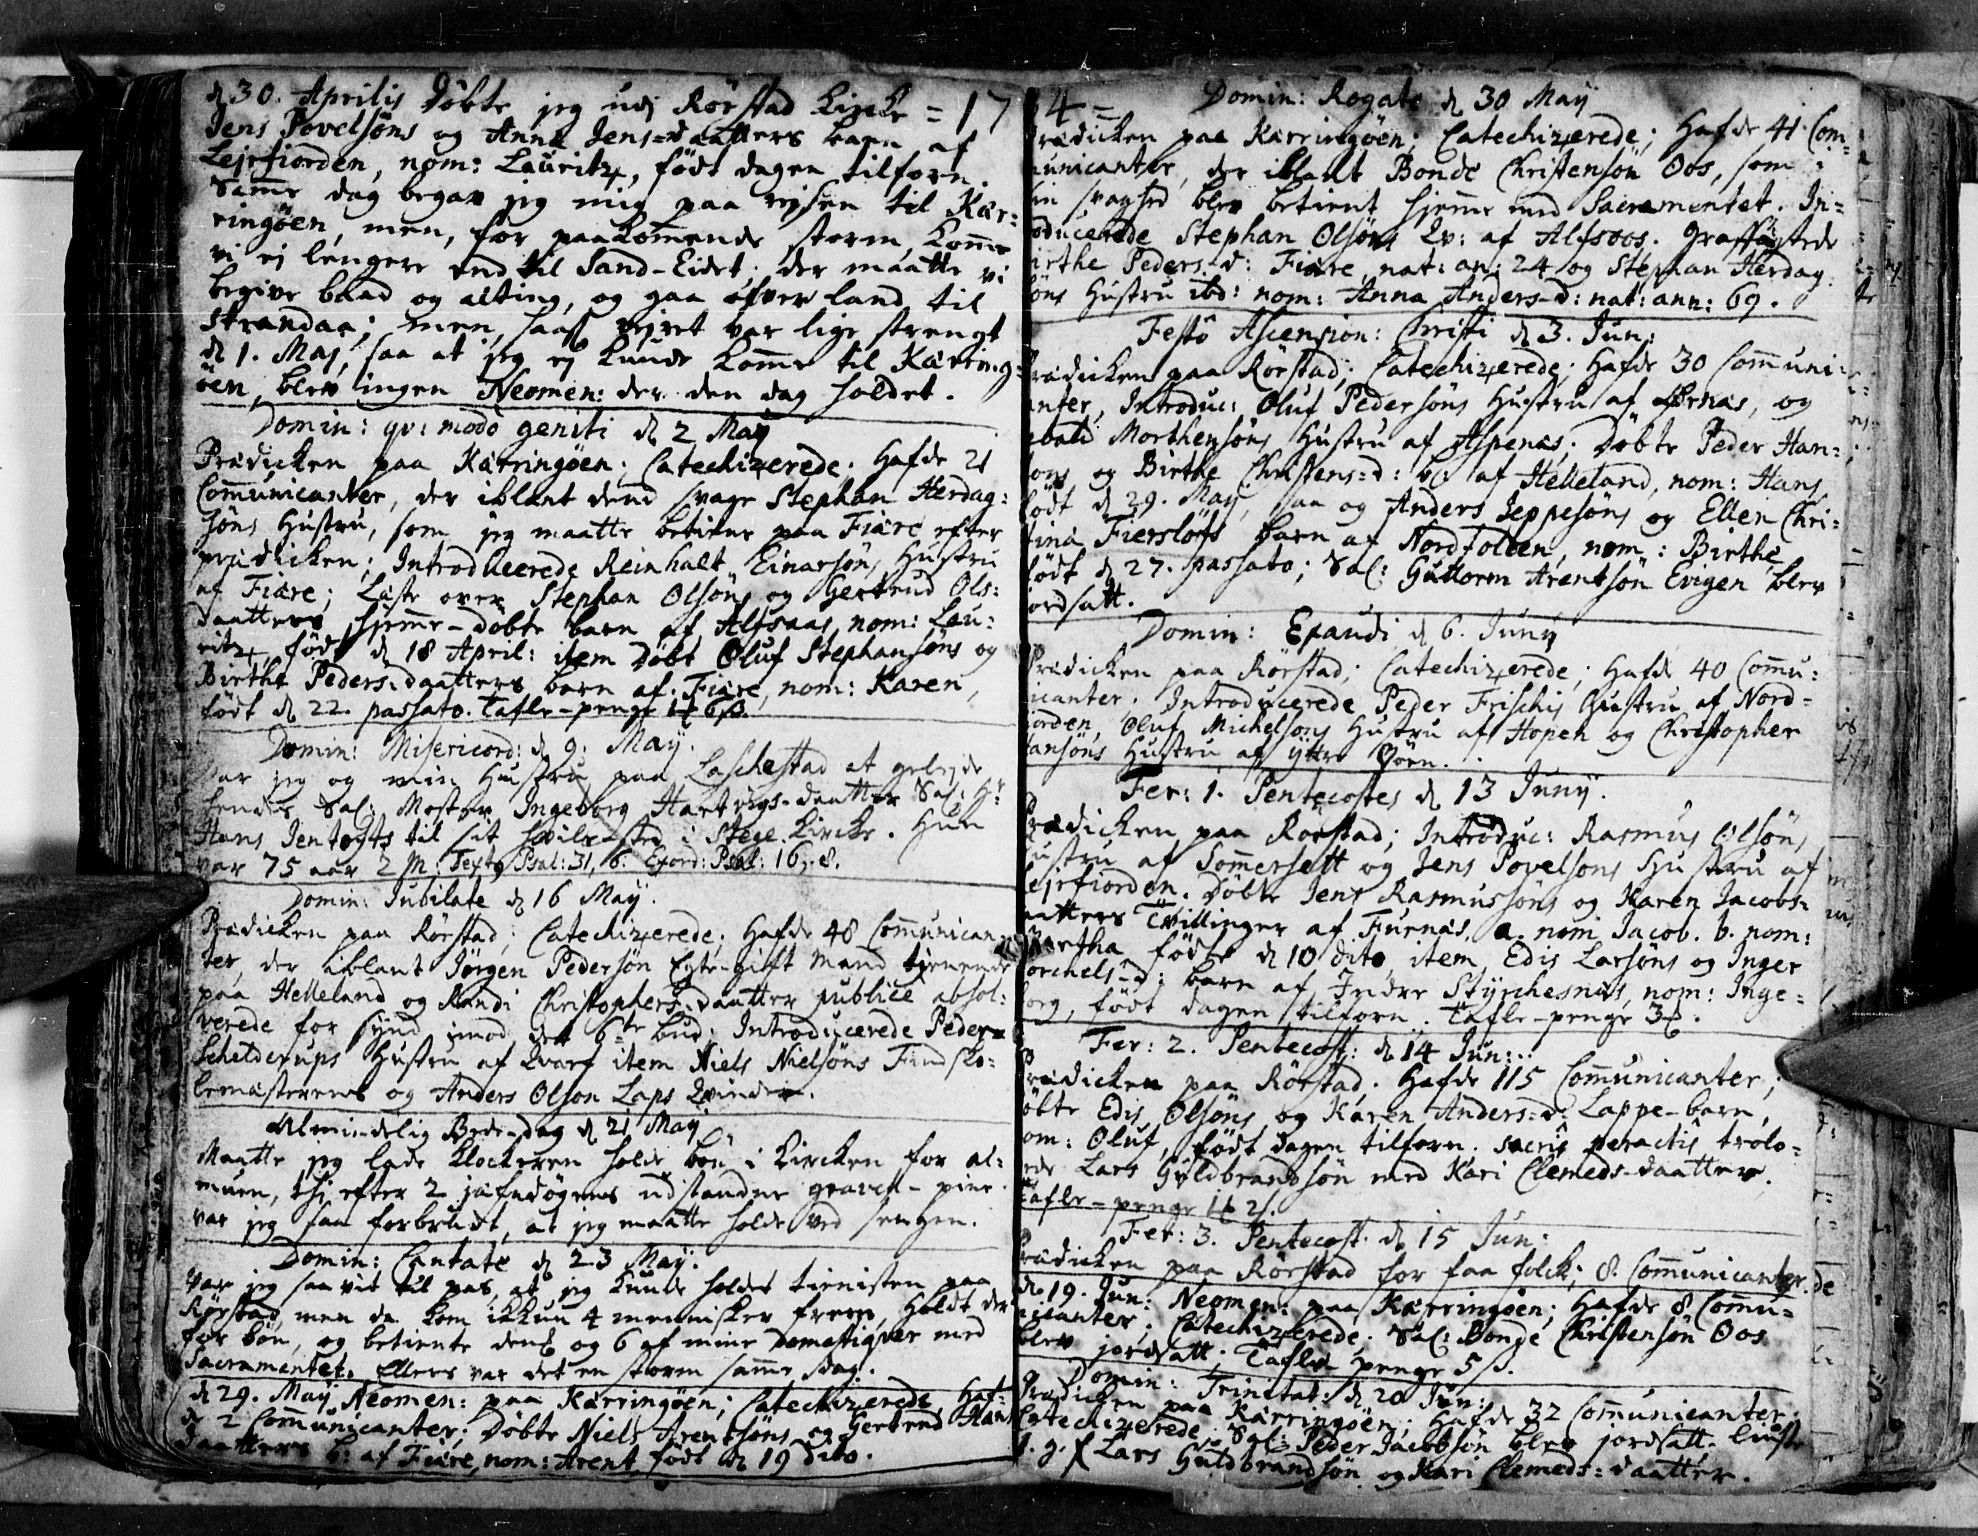 d 30. Aprilis Døbte jeg udj Rørstad Kircke = 17
Jens Povelsøns og Anna Jens-daatters barn af
Lejrfiorden, nom: Lauritz, født dagen tilforn.
Samme dag begav jeg mig paa rejsen til Kær-
ringøen, men, for paakommende storm, komme
vi ej lengere end til Sand-Eidet; der maatte vi
begive baad og alting, og gaa ofver land til
Strandaa; men, saasom vejret var lige strengt
d 1. Maj, saa at jeg ej kunde komme til Kærring-
öen, blev ingen Neomen: der den dag holdet.
Domin: qv: modo geniti d 2 Maÿ
Prædicken paa Kærringøen. Catechizerede. Hafde 21
Communicanter, der iblant dend svage Stephan Herdag-
søns Hustru, som jeg maatte betiene paa Fiære efter
prædicken; Introducerede Reinhalt Einarsøns Hustru
af Fiære; Læste over Stephan Olsøns og Gertrud Ols-
daatters hjemme-døbte barn af Alfsaas, nom: Lau-
ritz, født d 18 April: item Døbt Oluf Stephansøns og
Birthe Peders-daatters barn af Fiære, nom: Karen,
født d 22. passato. Tafle-penge 1 6 s.
Domin: Misericord: d 9. Maÿ.
Var jeg og min Hustru paa Laschestad at geleide
hendes Sal: Moster Ingeborg Hartvigs-daatter Sal: Hr
Hans Jentofts til sit Hvile-sted i Steje Kircke. Hun
var 75 aar 2 M. Textg Psal: 31, 6. Exord: Psal: 16, 8.
Domin: Jubilate d 16 Maÿ.
Prædicken paa Rørstad; Catechizerede; Hafde 48 Communican-
ter, der iblant Jørgen Pedersøn Egte-gift Mand tjenende
paa Helleland og Randi Christophers-daatter publicè absol-
verede for synd imod det 6te bud; Introducerede Peder
Schelderups Hustru af Qvarf item Niels Nielsøns Find Sko-
lemesterens og Anders Olson Laps Qvinder.
Almindelig Bede-dag d 21 Maÿ
Maatte jeg lade Klockeren holde bøn i Kircken for al-
muen, thi efter 2 jafndøgens udstandne graven-pine
var jeg saa forbrudt, at jeg maatte holde ved sengen.
Domin: Cantate d 23 Maÿ.
Var jeg saa vit til pas, at jeg kunde holdet tienisten paa
Rørstad, men da kom ikkun 4 mennisker frem, Holdt der
for bøn, og betiente dem og 6 af mine Domestiqver med
Sacramentet. Ellers var det en storm samme dag.
d 29. Maÿ Neomen: paa Kærringøen; Catechizerede. Haf-
de 2 Communicanter; Døbte Niels Arentsøns og Gertrud Hans
daatters b: af Fiære, nom: Arent født d 19 dito.
34 =
Domin: Rogate d 30 Maÿ
Prædicken paa Kærringøen; Catechizerede; Hafde 41 Com-
municanter, der iblant Bonde Christensøn Oos, som
sin svaghed blev betient hjemme med Sacramentet. In-
troducerede Stephan Olsøns Qv: af Alfsoos. Graffæstede
Birthe Peders-d: Fiære, nat: an: 24 og Stephan Herdag-
søns Hustru ibd: nom: Anna Anders-d: nat: ann: 69.
Festô Ascension: Christi d 3. Jun:
Prædicken paa Rørstad; Catechizerede; Hafde 30 Communi-
canter, Introduc: Oluf Pedersøns Hustru af Ørnæs, og
Morthensøns Hustru af Aspenæs; Døbte Peder Han-
søns og Birthe Christens-d: b: af Helleland, nom: Hans
født d 29. Maÿ, saa og Anders Jeppesøns og Ellen Chri-
stina Fiersløfs barn af Nordfolden, nom: Birthe
født d 27. passato; Sal: Guttorm Arentsøn Evigen blev
jordsatt.
Domin: Exaudi d 6. Junÿ
Prædicken paa Rørstad; Catechizerede; Hafde 40 Commu-
nicanter. Introducerede Peder Frischis Hustru af Nord-
fiorden, Oluf Michelsøns Hustru af Hopen og Christopher
Hansøns Hustru af Ÿttre Røen.
Fer: 1. Pentecostes d 13 Junÿ.
Prædicken paa Rørstad; Introduc: Rasmus Olsøns
Hustru af Sommersett og Jens Povelsøns Hustru af
Lejrfiorden. Døbte Jens Rasmussøns og Karen Jacobs-
daatters Tvillinger af Furnæs, a. nom: Jacob. b. nom:
Martha, fødte d 10 dito, item Edis Larsøns og Inger
Torchels-d: barn af Indre Styrchesnæs, nom: Inge-
borg, født dagen tilforn. Tafle-penge 3.
Fer: 2. Pentecost: d 14 Jun:
Prædicken paa Rørstad. Hafde 115 Communicanter;
Døbte Edis Olsøns og Karen Anders-d: Lappe-barn,
nom: Oluf, født dagen tilforn. sacris peractis trolo-
vede Lars Gÿldbrandsøn med Kari Clemeds-daatter.
Tafle-penge 1 2 s.
Fer: 3. Pentecost. d 15 Jun:
Prædicken paa Rørstad for faa folck; 8. Communicanter.
d 19. Jun: Neomen: paa Kærringøen; Hafde 8 Commu-
nicanter; Catechizerede. Sal: Bonde Christensøn Oos
blev jordsatt; Tafle-penge 5 s.
Domin: Trinitat: d 20 Jun:
Prædicken paa Kærringøen; Hafde 32 Communicanter.
Catechizerede. Sal: Peder Jacobsøn blev jordsatt. Lyste
1. g. f Lars Guldbrandsøn og Kari Clemeds-daatter.